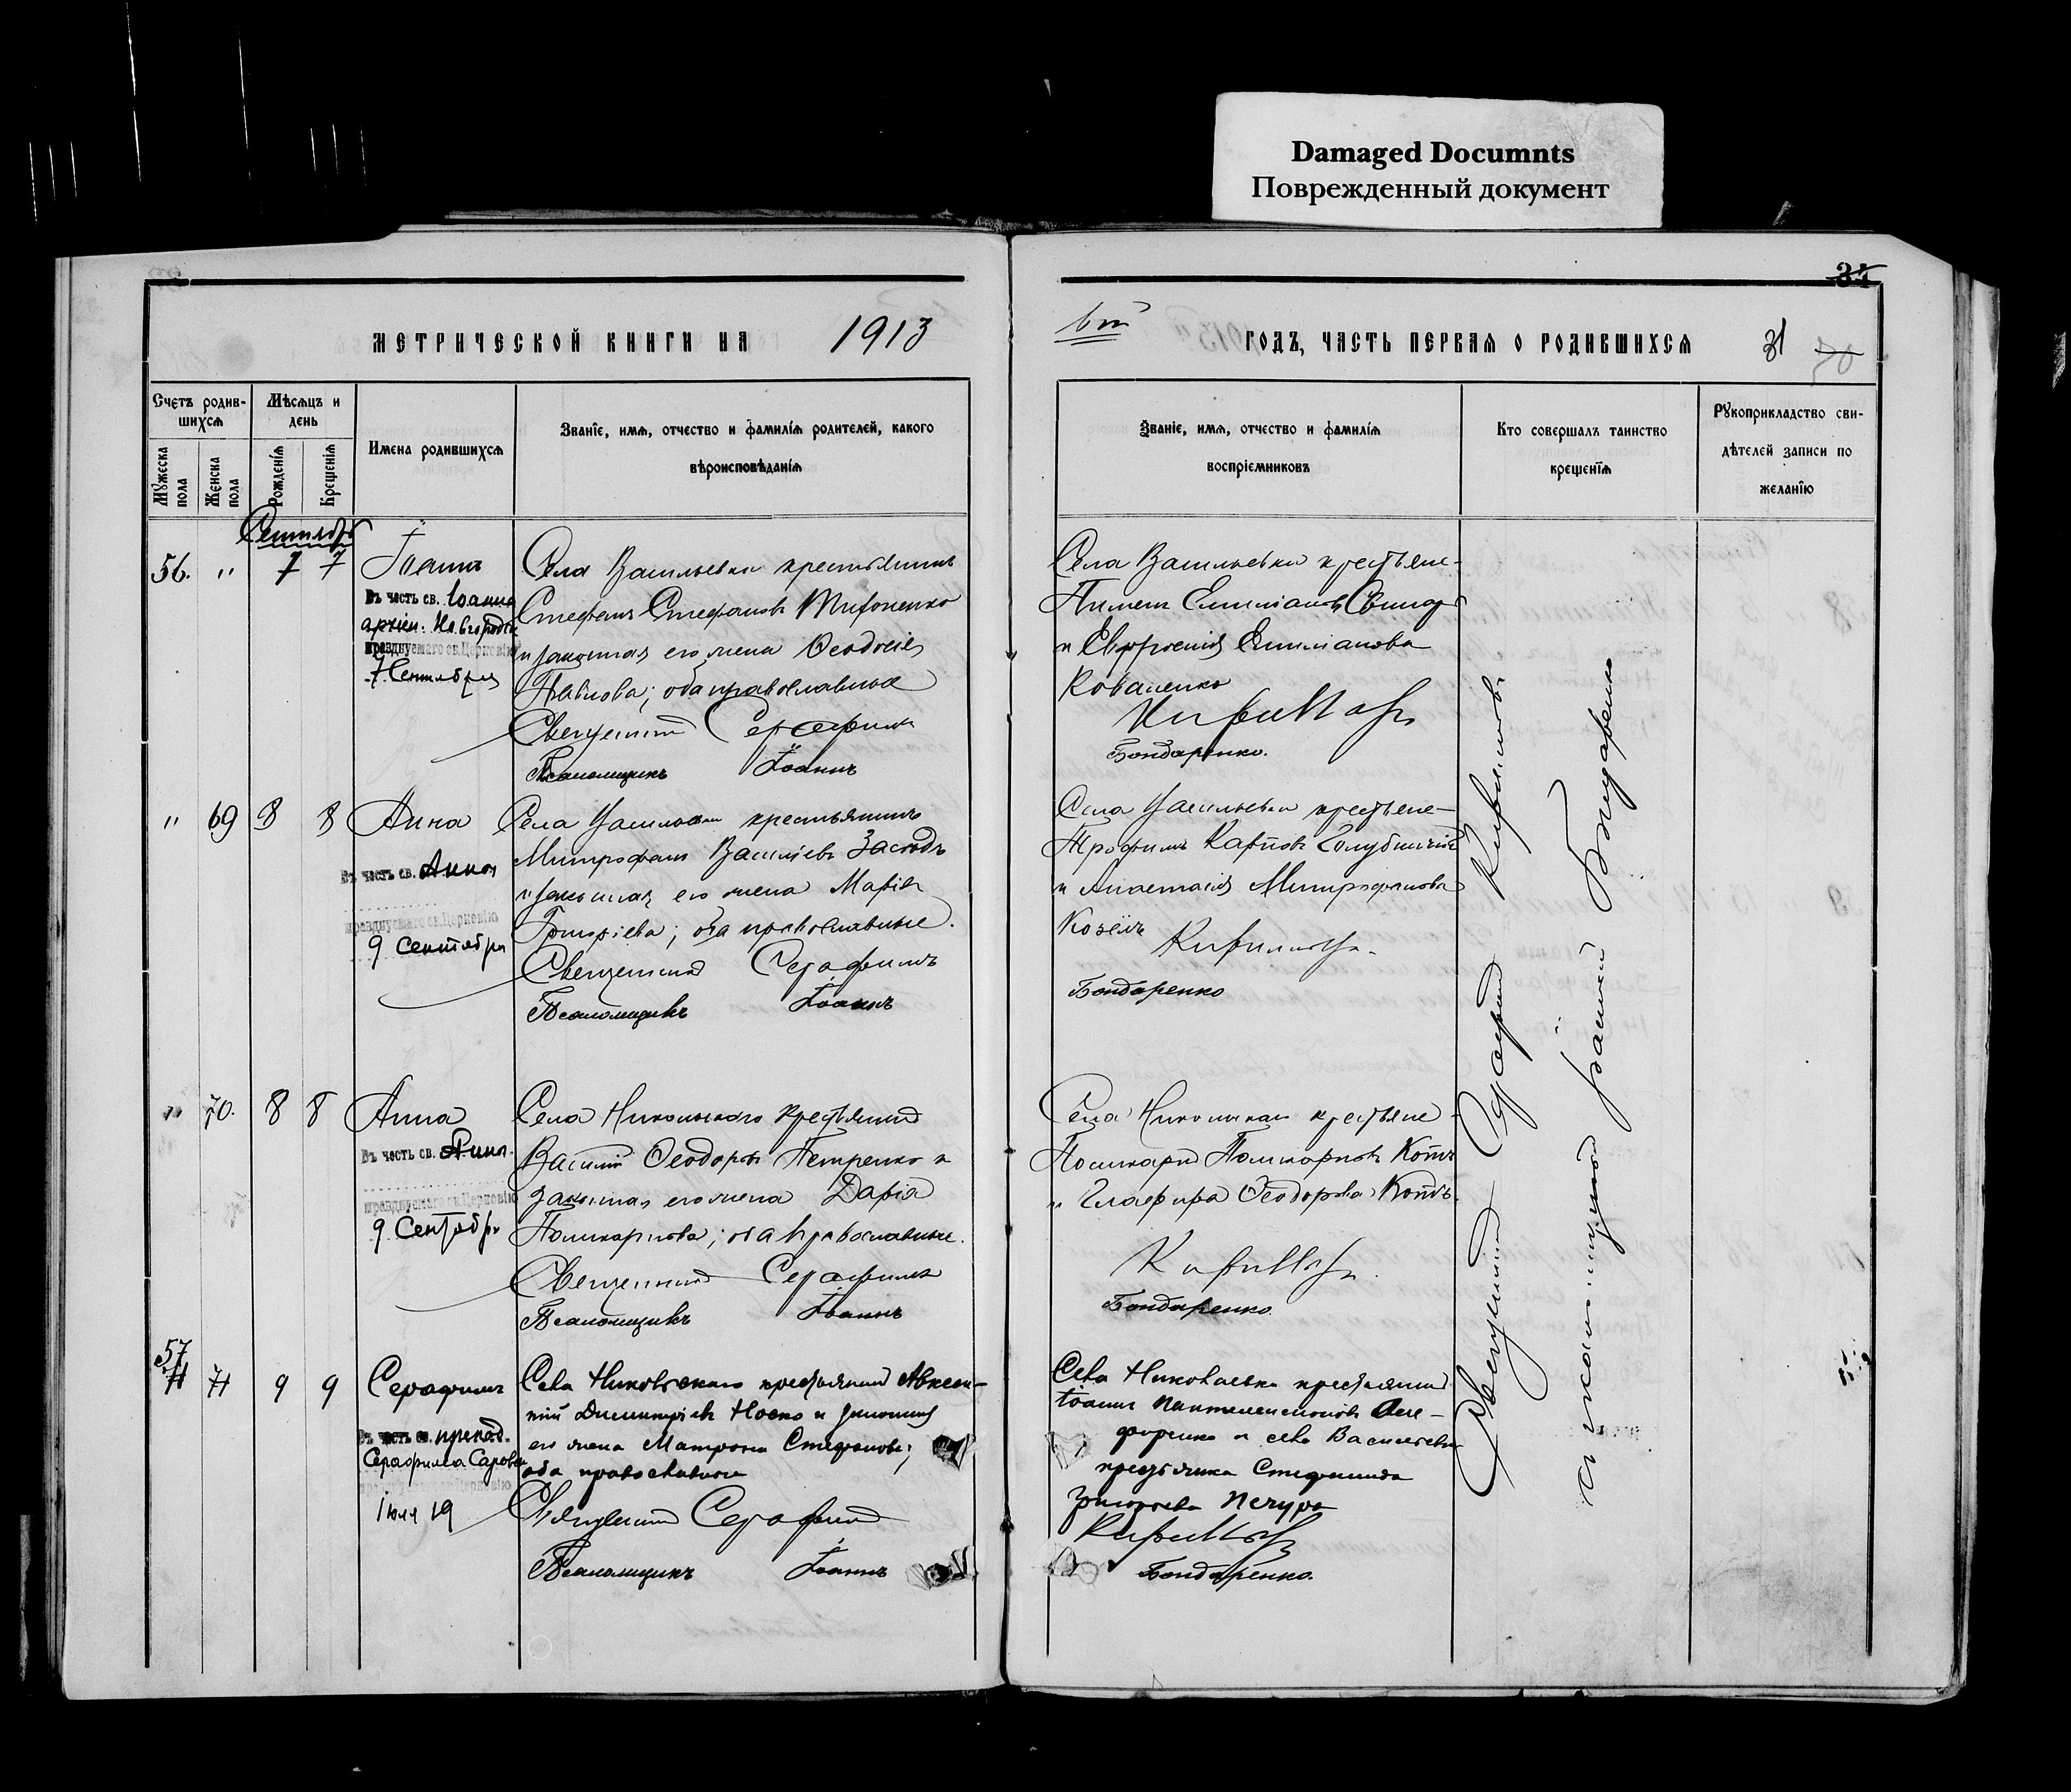 Damaged Documnts
Поврежденный документ
34
МЕТРИЧЕСКОЙ КНИГИ НА 1913
годъ, часть первая о родившихся 31
Счетъ родив-
шихся
Мѣсяцъ и
день
Мужеска
пола
Женска
пола
Рожденія
Крещенія
Имена родившихся
Званіе, имя, отчество и фамилія родителей, какого
вѣроисповѣданія
Званіе, имя, отчество и фамилія
воспріемниковъ
Кто совершалъ таинство
крещенія
Рукоприкладство сви-
дѣтелей записи по
желанію
Сентябрь
56. " 7 7
Іоаннъ
Въ честь св. Іоанна
архіеп. Новгородск
празднуемаго св. Церковію
7 Сентября
Села Васильевки крестьянинъ
Стефанъ Стефановъ
и законная его жена Ѳеодосія
Павлова; оба православные
Священникъ Серафимъ
Псаломщикъ Іоаннъ
Села Васильевки крестьяне-
Пименъ Емиліановъ
и Евфросинія Емиліанова
Коваленко
Кирилловъ
Бондаренко.
" 69 8 8
Анна
Въ честь св. Анны
празднуемаго св. Церковію
9 Сентября
Села Васильевки крестьянинъ
Митрофанъ Василіевъ
и законная его жена Марія
Григоріева; оба православные.
Священникъ Серафимъ
Псаломщикъ Іоаннъ
Села Васильевки крестьяне-
Трофимъ Карповъ
и Анастасія Митрофанова
Козелъ
Кирилловъ.
Бондаренко
" 70. 8 8
Анна
Въ честь св. Анны.
празднуемаго св. Церковію
9 Сентябр
Села Никольскаго крестьянинъ
Василій Ѳеодоровъ Петренко и
законная его жена Дарія
Поликарпова; оба православные.
Священникъ Серафимъ
Псаломщикъ Іоаннъ
Села крестьяне
Поликарпъ Поликарповъ Котъ
и Глафира Ѳеодорова Котъ.
Кирилловъ.
Бондаренко.
57
71 9 9
Серафимъ
Въ честь св. препод.
Серафима Саровск
празднуемаго св. Церковію
Іюля 19
Села Никольскаго крестьянинъ Авксен-
тій Димитріевъ Носко и законная
его жена Матрона Стефанова;
оба православные
Священникъ Серафимъ
Псаломщикъ Іоаннъ
Села Николаевки крестьянинъ
Іоаннъ Пантелеимоновъ
и села Васильевки
крестьянка Стефанида
Григорьева Печура
Кирилловъ
Бондаренко.
Священникъ Серафимъ Кирилловъ
псаломщикомъ Іоанномъ Бондаренко